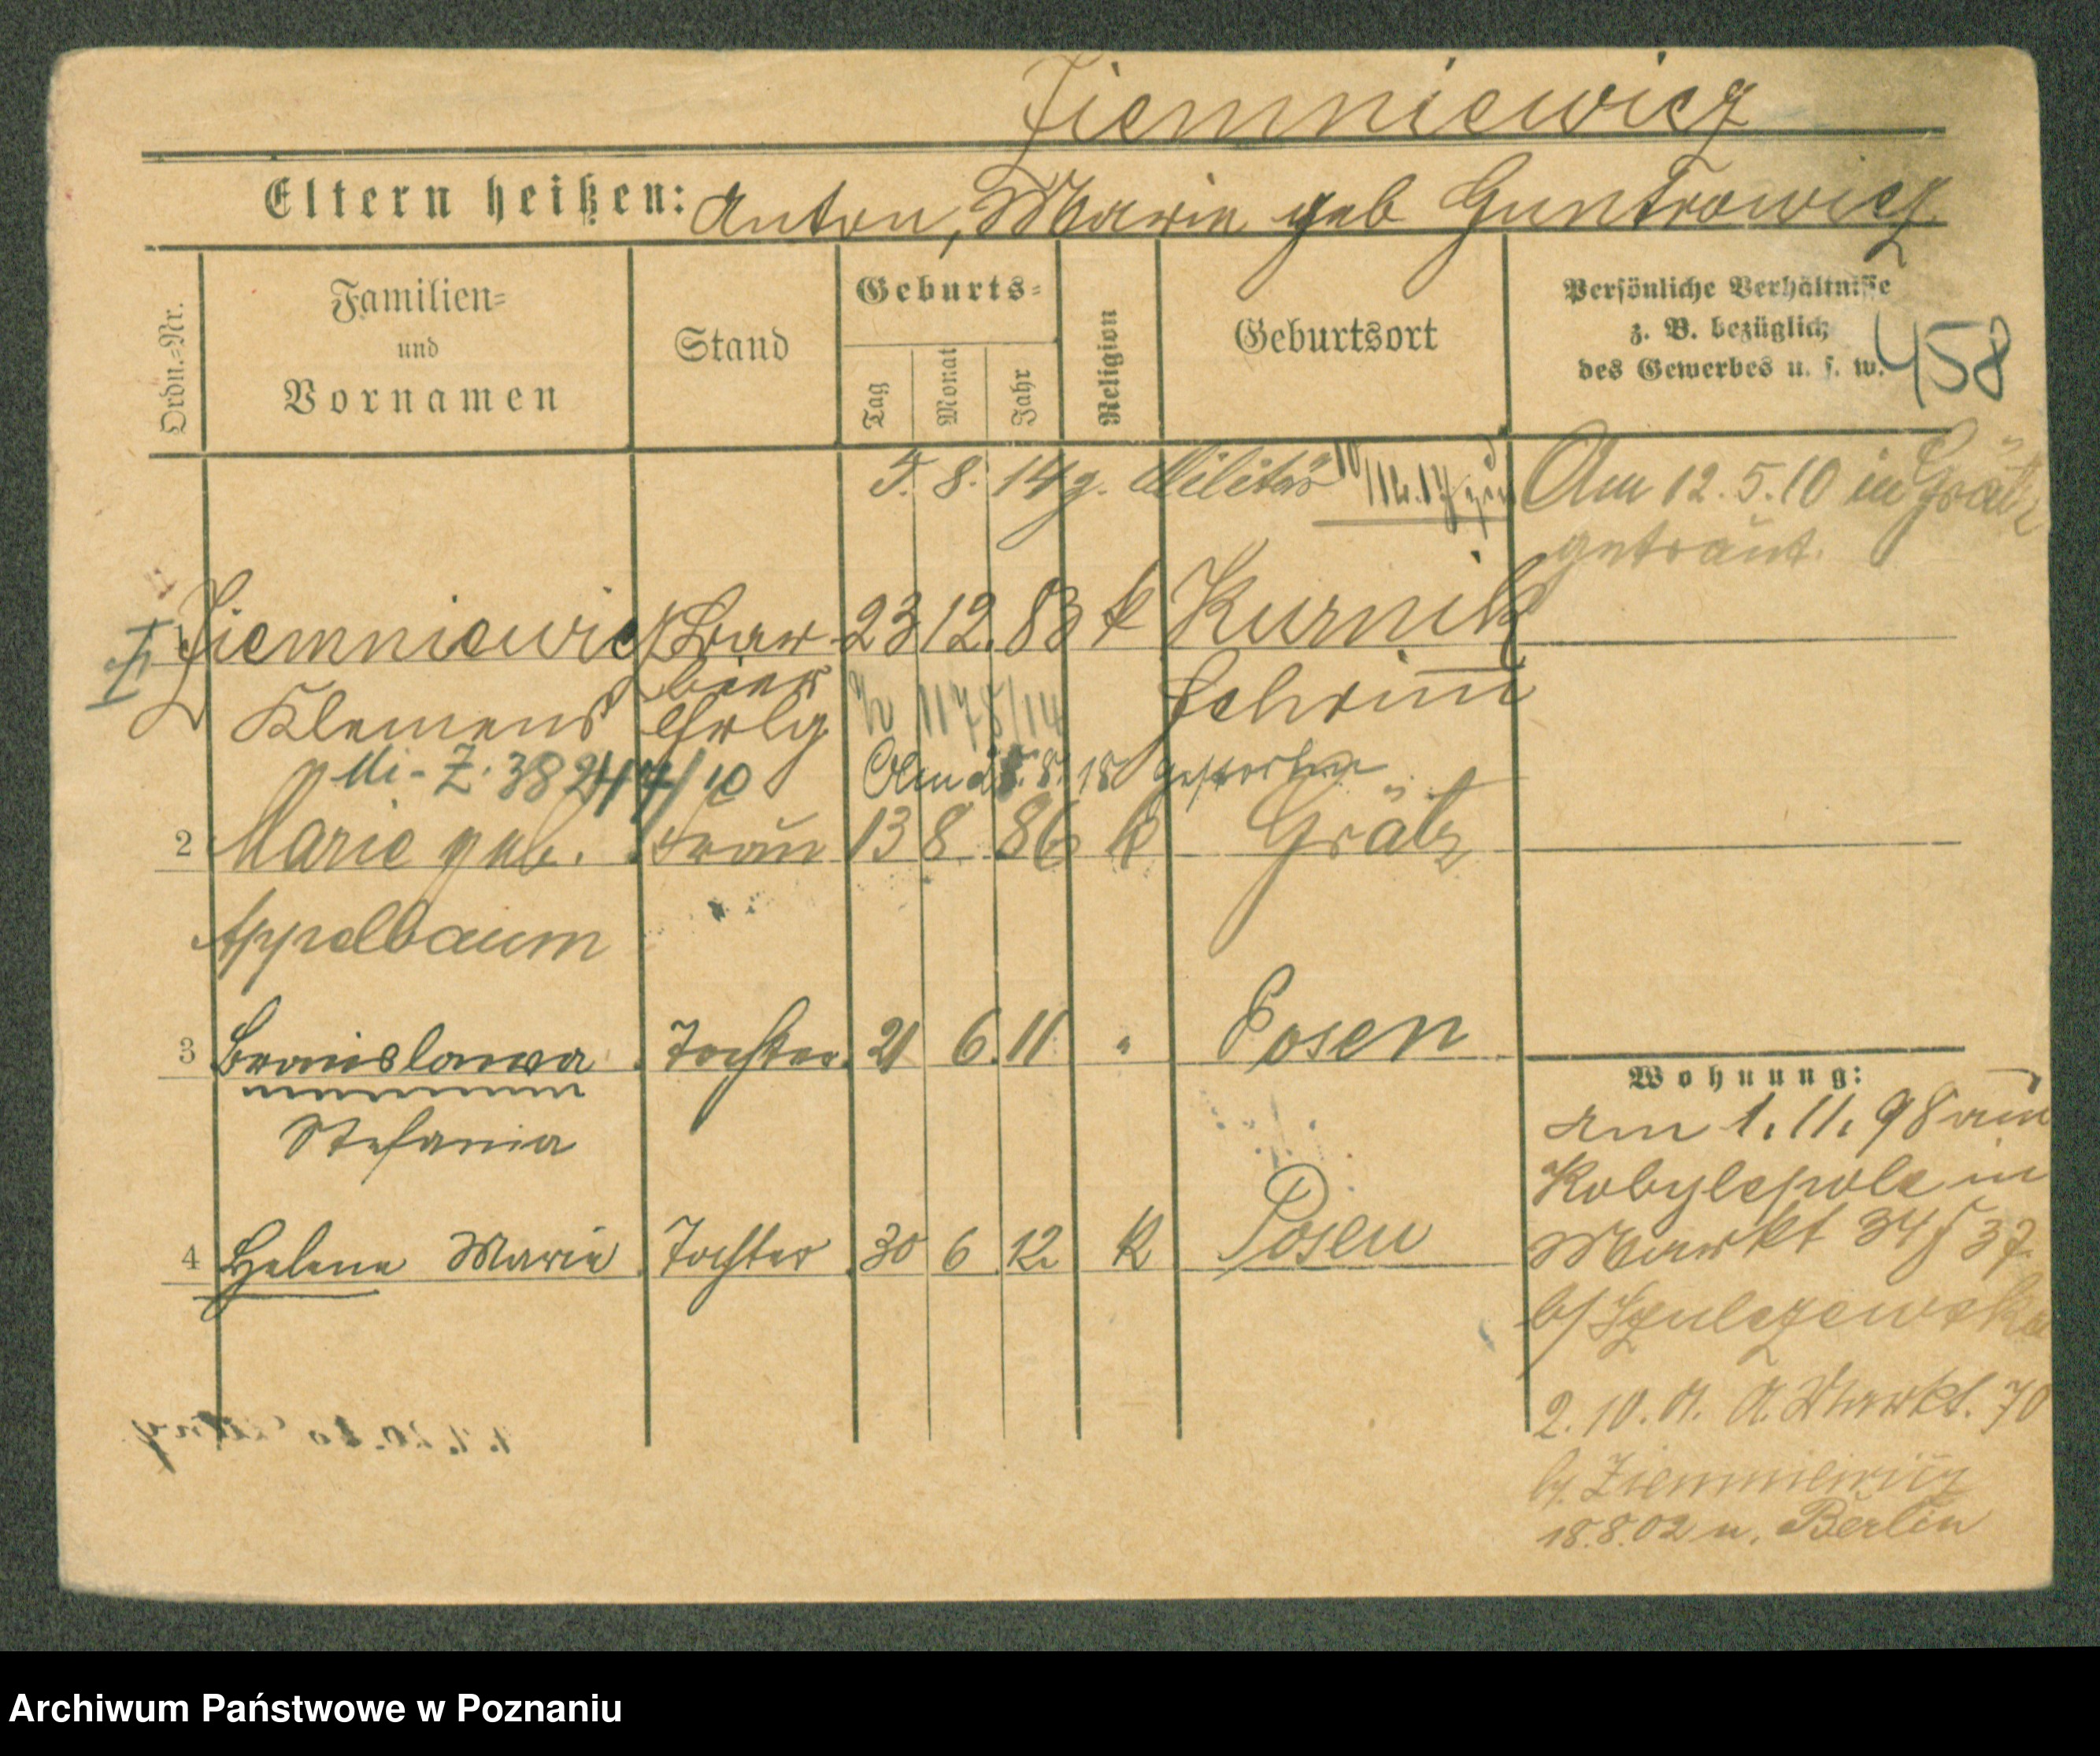 Ziemniewicz
Eltern heißen: Anton, Marie geb Guntrowicz
Ordn.-Nr.
Familien-
und
Vornamen
Stand
Geburts-
Tag
Monat
Jahr
Religion
Geburtsort
Persönliche Verhältnisse
z. B. bezüglich
des Gewerbes u. s. w.
458
5. 8. 14 z. Militär
Am 12.5.10 in Grätz
getraut.
Ziemniewicz Bar- 23 12. 83 k Kurnik
Klemens bier Schrimm
Lehrlg
1178/14
Mi-Z. 38 247/10
Am 25.8.18 gestorben
2 Marie geb. Frau 13 8. 86 k Grätz
Appelbaum
3 Bronislawa Tochter 21 6. 11 " Posen
Stefania
4 Helene Marie Tochter 30 6 12 k Posen
Wohnung:
Am 1.11.98 aus
Kobylepole in
Markt 37
b/ Szulczewska
2.10.01. A. Markt. 70
b/. Ziemniewicz
18.8.02 n. Berlin
Archiwum Państwowe w Poznaniu